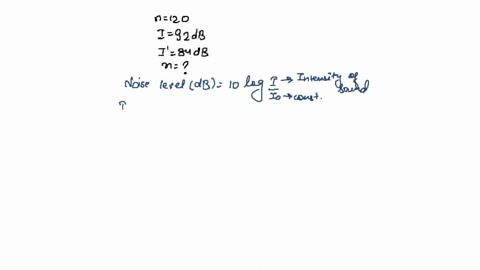 n=120
I=92dB
I'=84dB
n=?
Noise level(dB)= 10 log I/I₀ → Intensity of sound
→ const.